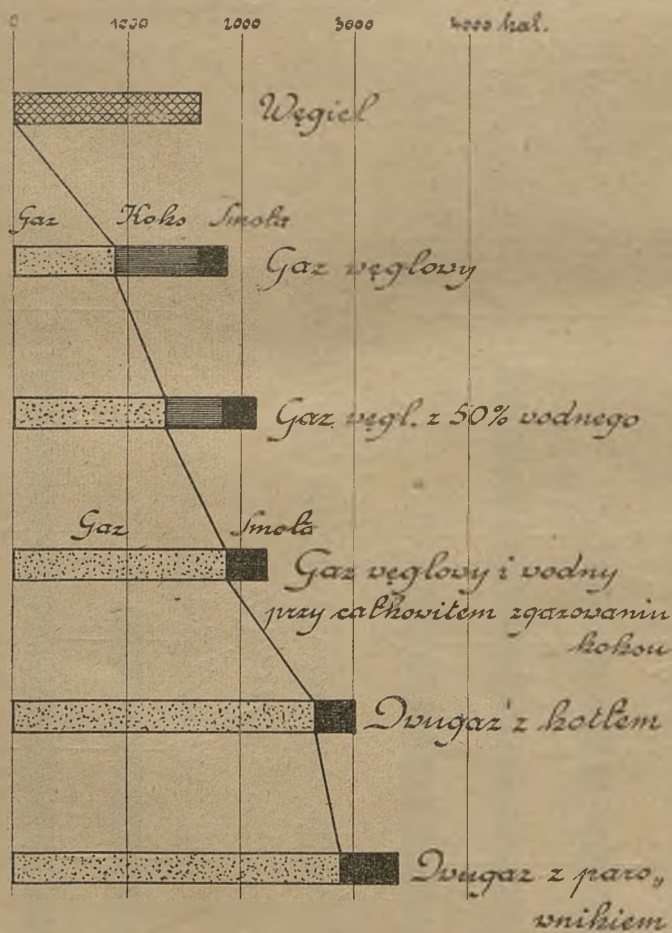 0 1000 2000 3000 4000 kal.
Węgiel
Gaz Koks Smoła
Gaz węglowy
Gaz węgl. z 50% wodnego
Gaz Smoła
Gaz węglowy i wodny
przy całkowitem zgazowaniu
koksu
Dwugaz z kotłem
Dwugaz z paro„
wnikiem